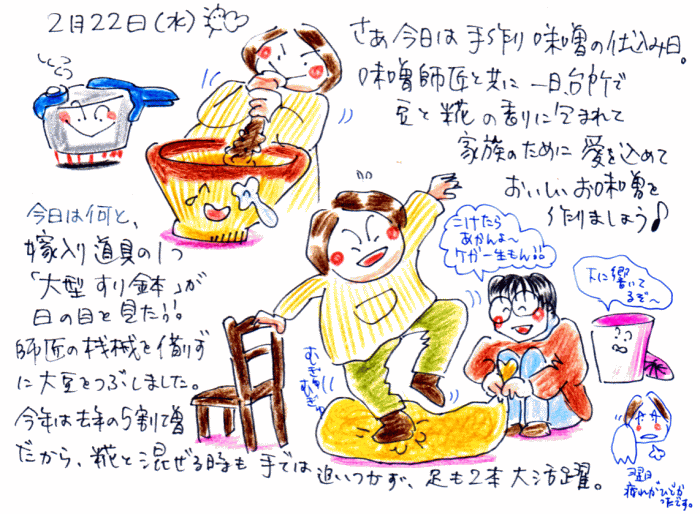 2月22日(水)
さあ今日は手作り味噌の仕込み日。
味噌師匠と共に一日台所で
豆と糀の香りに包まれて
家族のために愛を込めて
おいしいお味噌を
作りましょう♪
今日は何と、
嫁入り道具の1つ
「大型すり鉢」が
日の目を見た!!。
師匠の機械を借りず
に大豆をつぶしました。
今年は去年の5割で増
だから、糀と混ぜる時も手では追いつかず、足も2本大活躍。
こけたら
あかんよ〜
ケガ一生もん!!
下に響いて
るぞ〜
むぎゅ
むぎゅ
翌日
疲れがひどか
ったです。